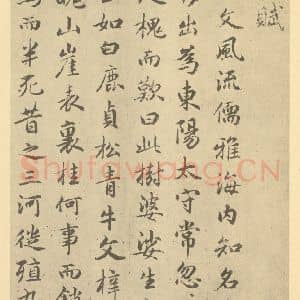 賦
文風流儒雅海内知名
出為東陽太守常忽
槐而歎曰此樹婆娑生
如白鹿貞松青牛文梓
山崖表裏桂何事而銷
為而半死昔之三河徙殖九
Shufawang.CN